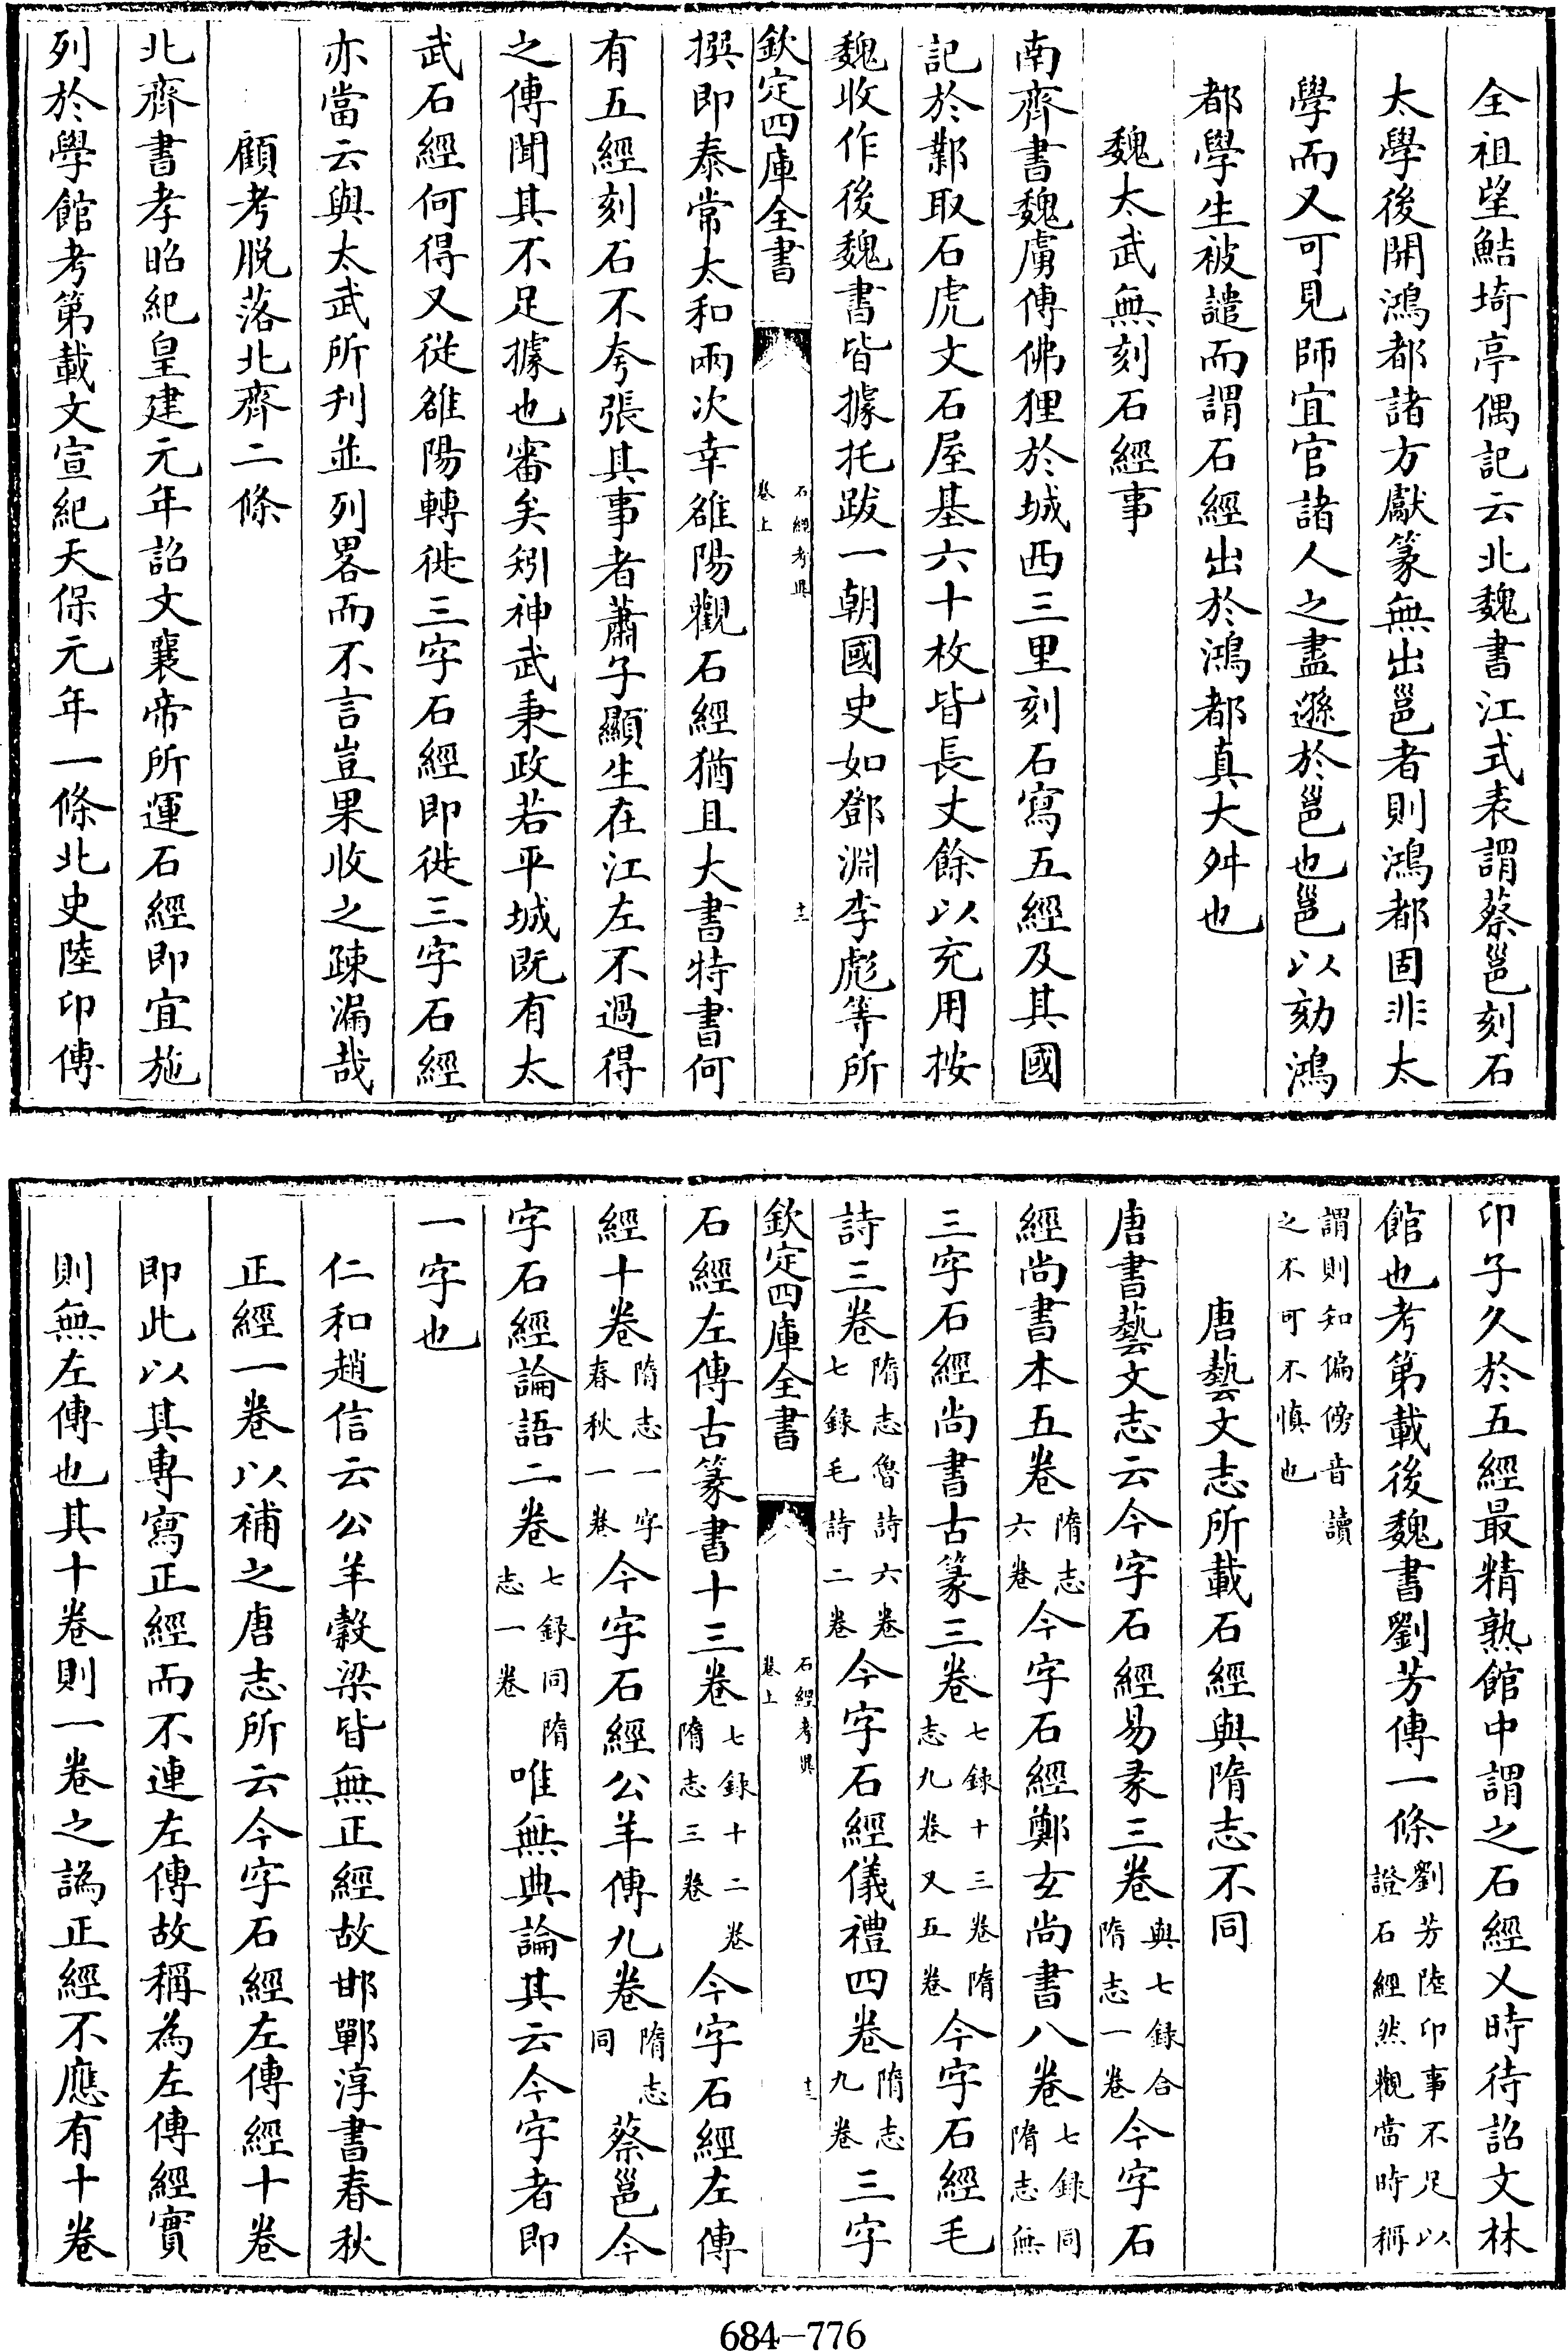 全祖望鮚埼亭偶記云北魏書江式表謂蔡邕刻石
太學後開鴻都諸方獻篆無出邕者則鴻都固非太
學而又可見師宜官諸人之盡遜於邕也邕以劾鴻
都學生被譴而謂石經出於鴻都真大舛也
魏太武無刻石經事
南齊書魏虜傳佛狸於城西三里刻石寫五經及其國
記於鄴取石虎文石屋基六十枚皆長丈餘以充用按
魏收作後魏書皆據托跋一朝國史如鄧淵李彪等所
欽定四庫全書
石經考異
卷上
十二
撰即泰常太和兩次幸雒陽觀石經猶且大書特書何
有五經刻石不夸張其事者蕭子顯生在江左不過得
之傳聞其不足據也審矣矧神武秉政若平城既有太
武石經何得又從雒陽轉徙三字石經即徙三字石經
亦當云與太武所刊並列畧而不言豈果收之疎漏哉
顧考脱落北齊二條
北齊書孝昭紀皇建元年詔文襄帝所運石經即宜施
列於學館考第載文宣紀天保元年一條北史陸印傳
印子久於五經最精熟館中謂之石經乂時待詔文林
館也考第載後魏書劉芳傳一條劉芳陸印事不足以
證石經然觀當時稱
謂則知偏傍音讀
之不可不慎也
唐藝文志所載石經與隋志不同
唐書藝文志云今字石經易篆三卷與七録合
隋志一卷今字石
經尚書本五卷隋志
六卷今字石經鄭玄尚書八卷七録同
隋志無
三字石經尚書古篆三卷七録十三卷隋
志九卷又五卷今字石經毛
詩三卷隋志魯詩六卷
七録毛詩二卷今字石經儀禮四卷隋志
九卷三字
欽定四庫全書
石經考異
卷上
十三
石經左傳古篆書十三卷七録十二卷
隋志三卷今字石經左傳
經十卷隋志一字
春秋一卷今字石經公羊傳九卷隋志
同蔡邕今
字石經論語二卷七録同隋
志一卷唯無典論其云今字者即
一字也
仁和趙信云公羊穀梁皆無正經故邯鄲淳書春秋
正經一卷以補之唐志所云今字石經左傳經十卷
即此以其專寫正經而不連左傳故稱為左傳經實
則無左傳也其十卷則一卷之譌正經不應有十卷
684-776